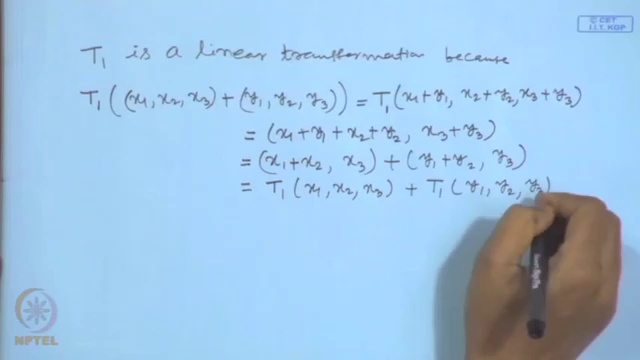 © CET
I.I.T. KGP
T₁ is a linear transformation because
T₁((x₁, x₂, x₃) + (y₁, y₂, y₃)) = T₁(x₁+y₁, x₂+y₂, x₃+y₃)
= (x₁+y₁+x₂+y₂, x₃+y₃)
= (x₁+x₂, x₃) + (y₁+y₂, y₃)
= T₁(x₁, x₂, x₃) + T₁(y₁, y₂, y₃)
NPTEL